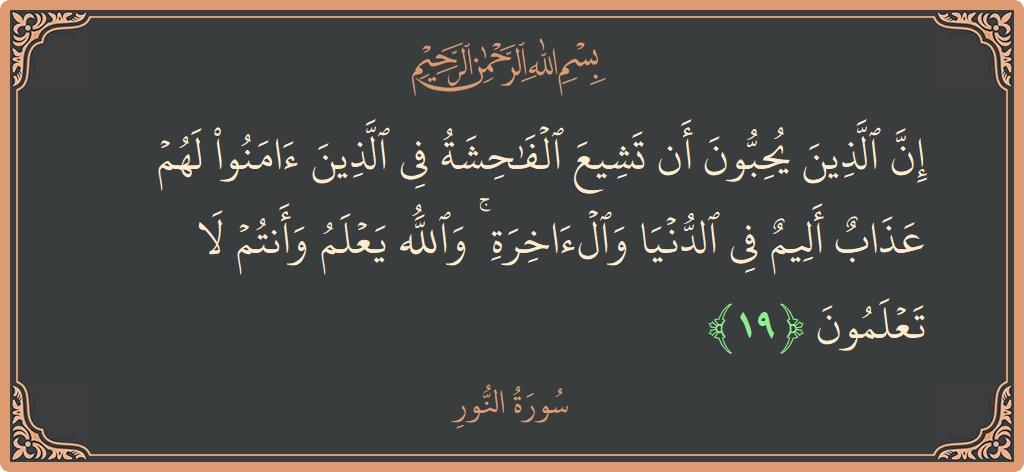 بِسْمِ اللهِ الرَّحْمٰنِ الرَّحِيْمِ
إِنَّ ٱلَّذِينَ يُحِبُّونَ أَن تَشِيعَ ٱلْفَـٰحِشَةُ فِى ٱلَّذِينَ ءَامَنُوا۟ لَهُمْ
عَذَابٌ أَلِيمٌ فِى ٱلدُّنْيَا وَٱلْءَاخِرَةِ ۚ وَٱللَّهُ يَعْلَمُ وَأَنتُمْ لَا
تَعْلَمُونَ ﴿١٩﴾
سُورَةُ النُّورِ